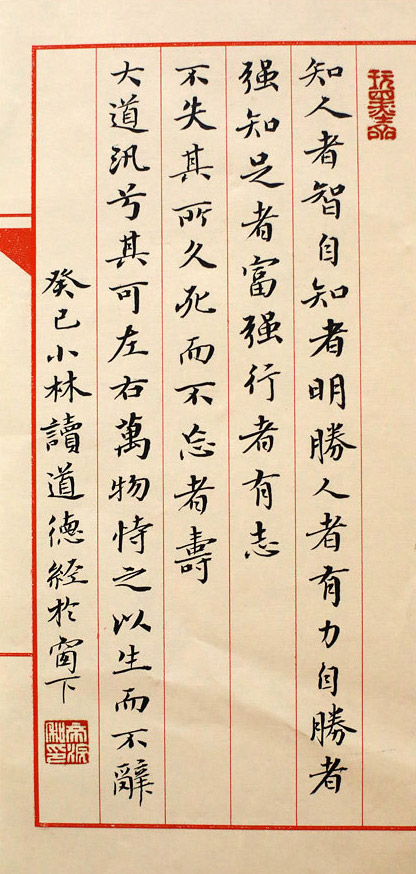 知人者智自知者明勝人者有力自勝者
强知足者富强行者有志
不失其所久死而不忘者壽
大道汎兮其可左右萬物恃之以生而不辭
癸巳小林讀道德經於窗下